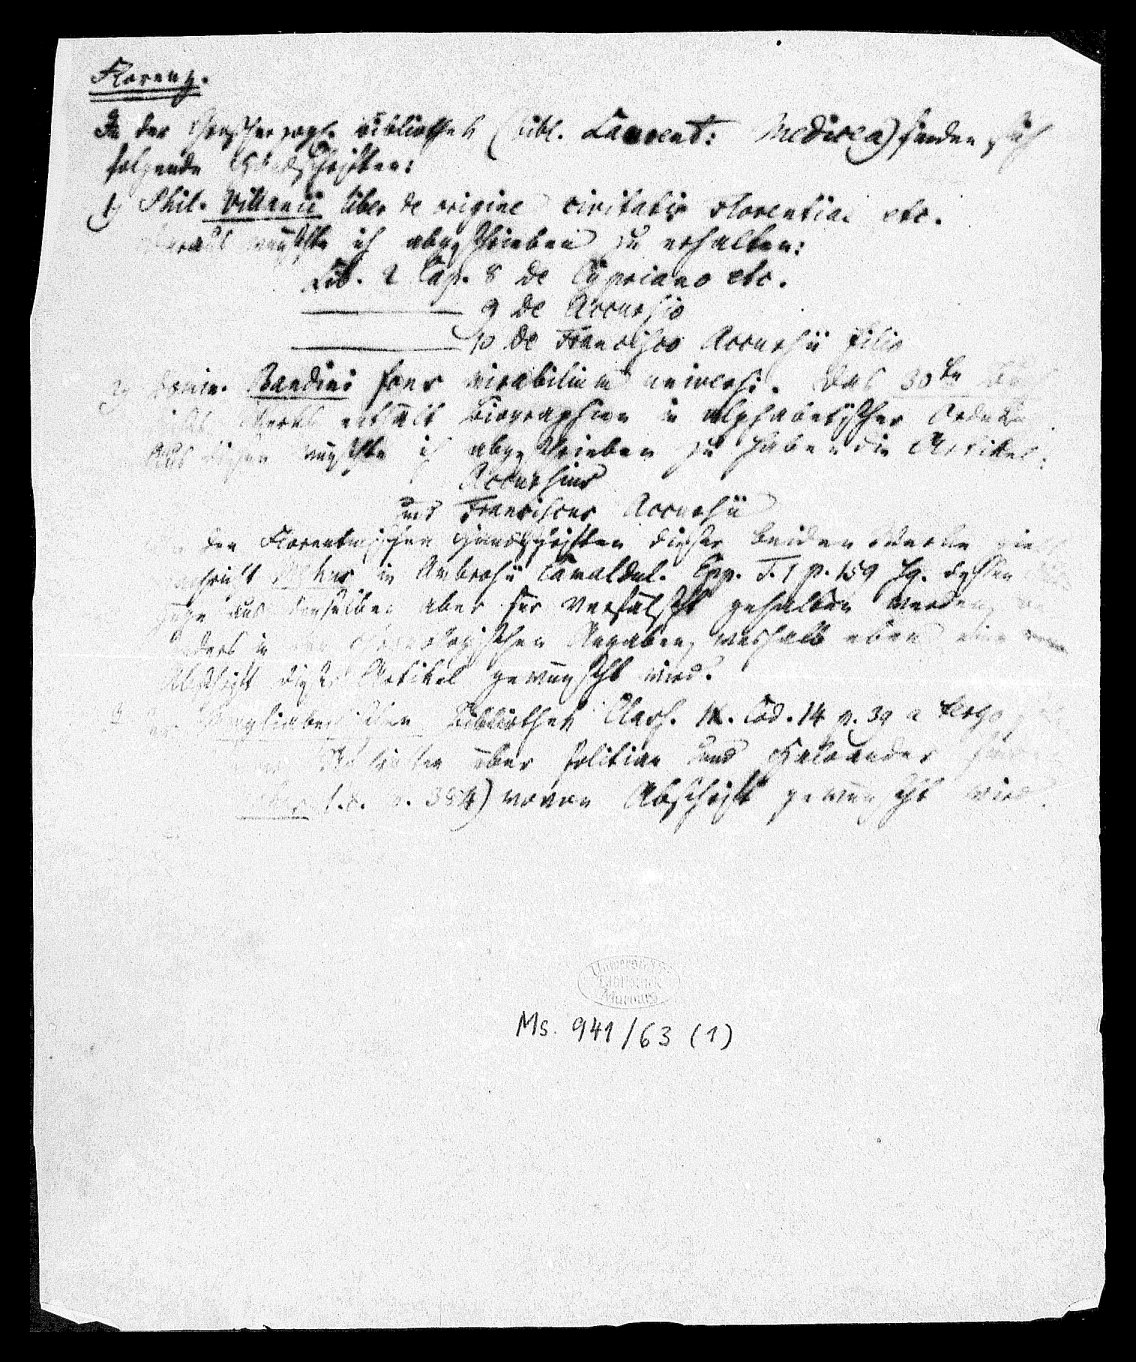 Florenz.
In der Großherzogl. Bibliothek (bibl. Laurent: Medicea) finden sich
folgende Handschriften:
1) Phil. Villanii liber de origine civitatis Florentiae etc.
Daraus wünschte ich abgeschrieben zu erhalten:
Lib. 2 Cap. 8 de Cypriano etc.
9 de Accursio
10 de Francisco Accursii filio
2) Domin. Bandini fons mirabilium universi. Das 30te
Werks enthält Biographien in alphabetischer Ordnung.
Aus diesen wünschte ich abgeschrieben zu haben die Artikel:
Accursius
und Franciscus Accursii
den Florentinischen Handschriften dieser beiden Werke giebt
Nachricht Mehus in Ambrosii Camaldul. Epp. T. 1 p. 159 sq. dessen
aus denselben aber für verfälscht gehalten werden,
in den chronologischen Angaben, weshalb eben eine
Abschrift dieser Artikel gewünscht wird.
Magliabechischen Bibliothek Class. IX. Cod. 14 p. 39 a tergo
über Politian und Haloander
p. 384) wovon Abschrift gewünscht wird.
Universitäts
Bibliothek
Marburg
Ms. 941/63 (1)